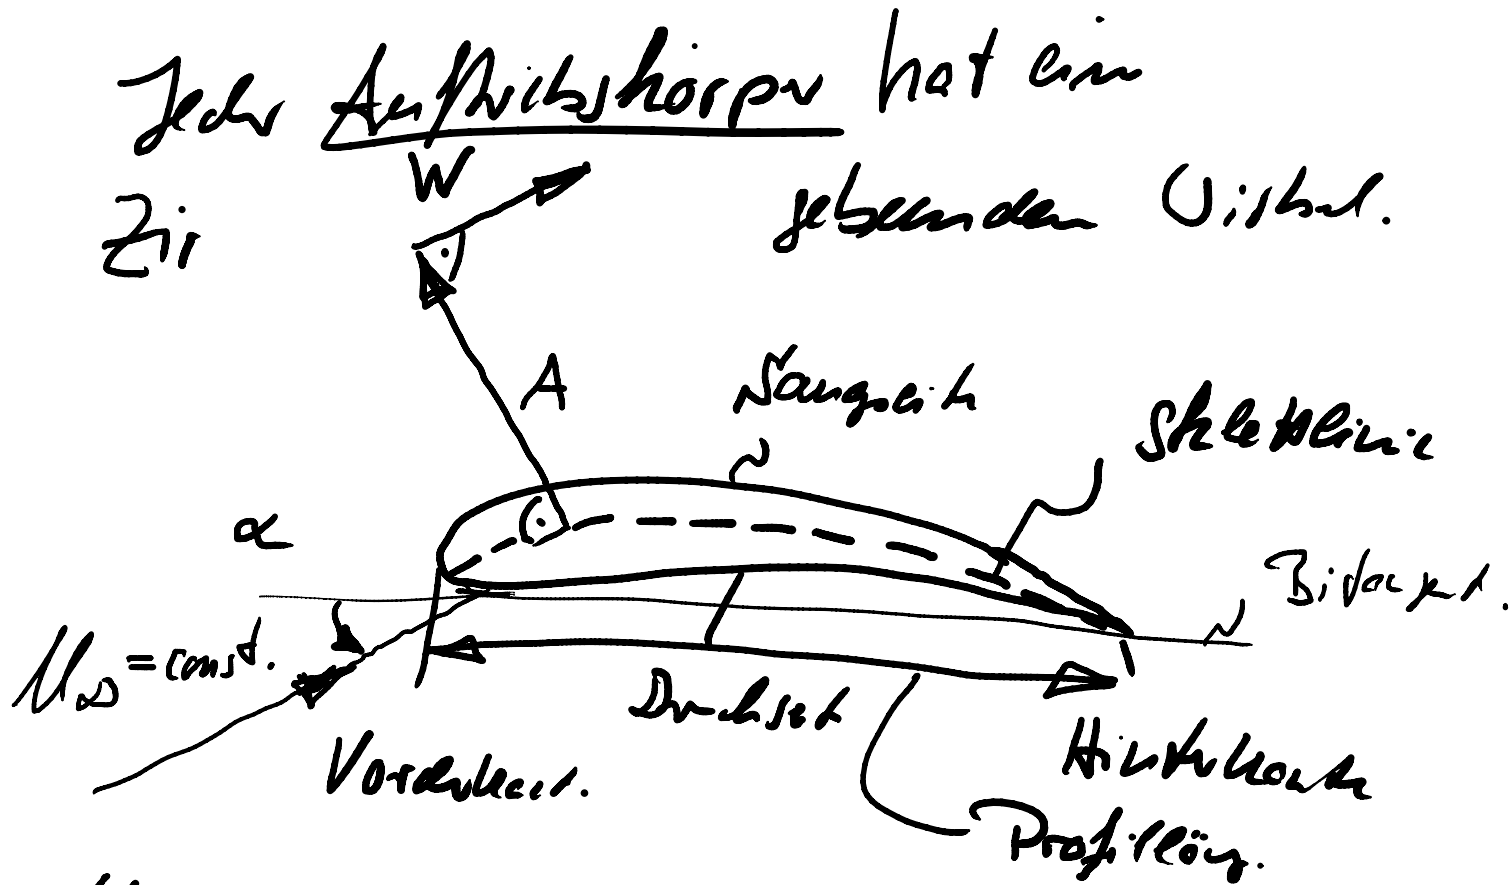 Jeder Auftriebskörper hat ein
Zir gebundenen Wirbel.
W
A
Saugseite
Skelettlinie
α
Bitangent.
U∞ = const.
Druckseite
Vorderkant.
Hinterkante
Profilläng.